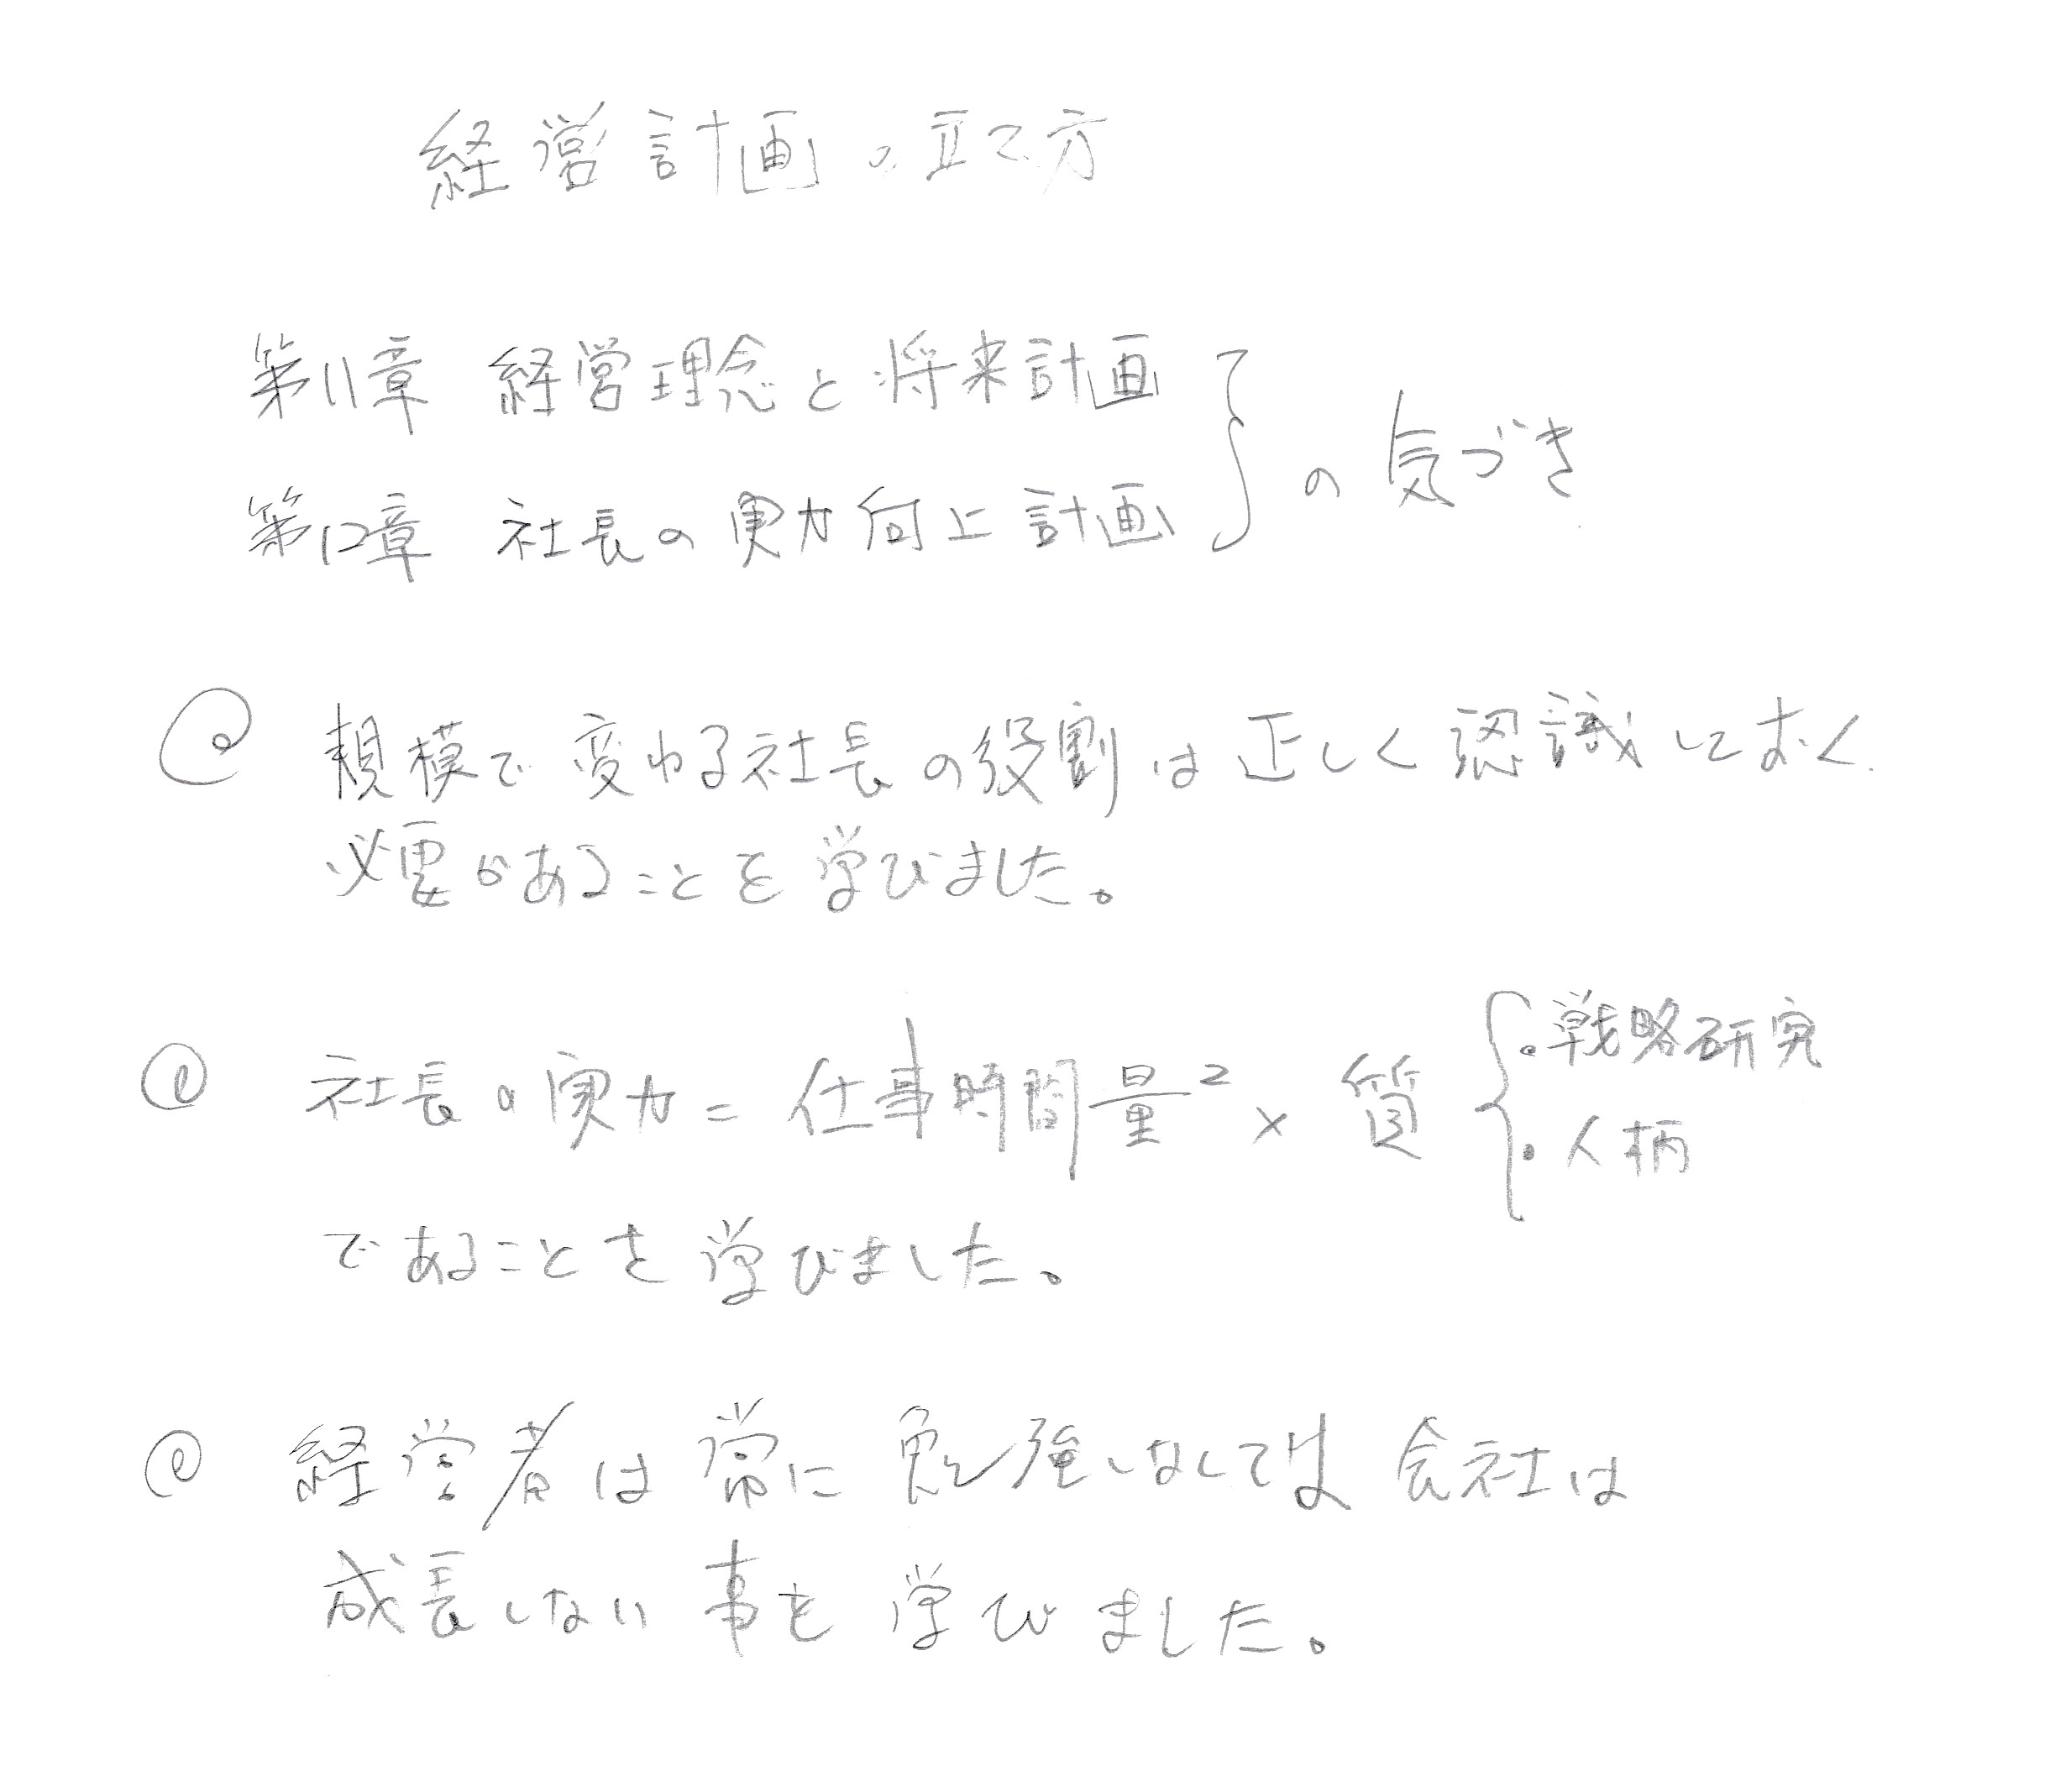 経営計画の立て方
第11章 経営理念と将来計画
第12章 社長の実力向上計画
} の気づき
◎ 規模で変わる社長の役割は正しく認識しておく
必要があることを学びました。
◎ 社長の実力=仕事時間量²×質 { ・戦略研究
・人柄
であることを学びました。
◎ 経営者は常に勉強しなしては会社は
成長しない事を学びました。